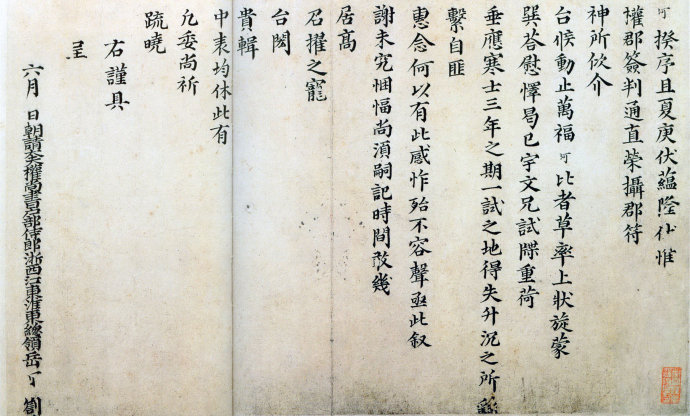 可揆序且夏庚伏蕴隆伏惟
權郡簽判通直榮攝郡符
神所攸介
台候動止萬福可比者草率上狀旋蒙
巽荅慰懌曷已宇文兄試牒重荷
垂應寒士三年之期一試之地得失升沉之所繇
繫自匪
惠念何以有此感怍殆不容聲亟此叙
謝未究悃愊尚須嗣記時間孜幾
居高
召擢之寵
台閤
貴輯
中表均休此有
凡委尚祈
疏曉
右謹具
呈
六月 日朝請大夫權尚書户部侍郎浙西江東淮東總領岳可劄